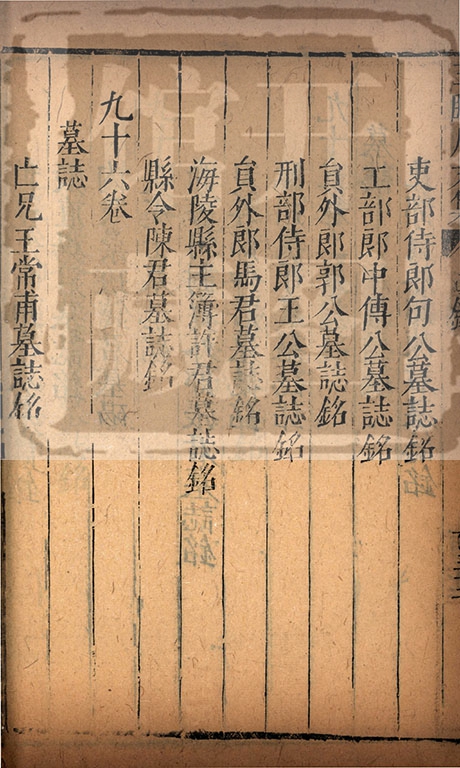 吏部侍郎句公墓誌銘
工部郎中傳公墓誌銘
貟外郎郭公墓誌銘
刑部侍郎王公墓誌銘
貟外郎馬君墓誌銘
海陵縣主簿許君墓誌銘
縣令陳君墓誌銘
九十六卷
墓誌
亡兄王常甫墓誌銘